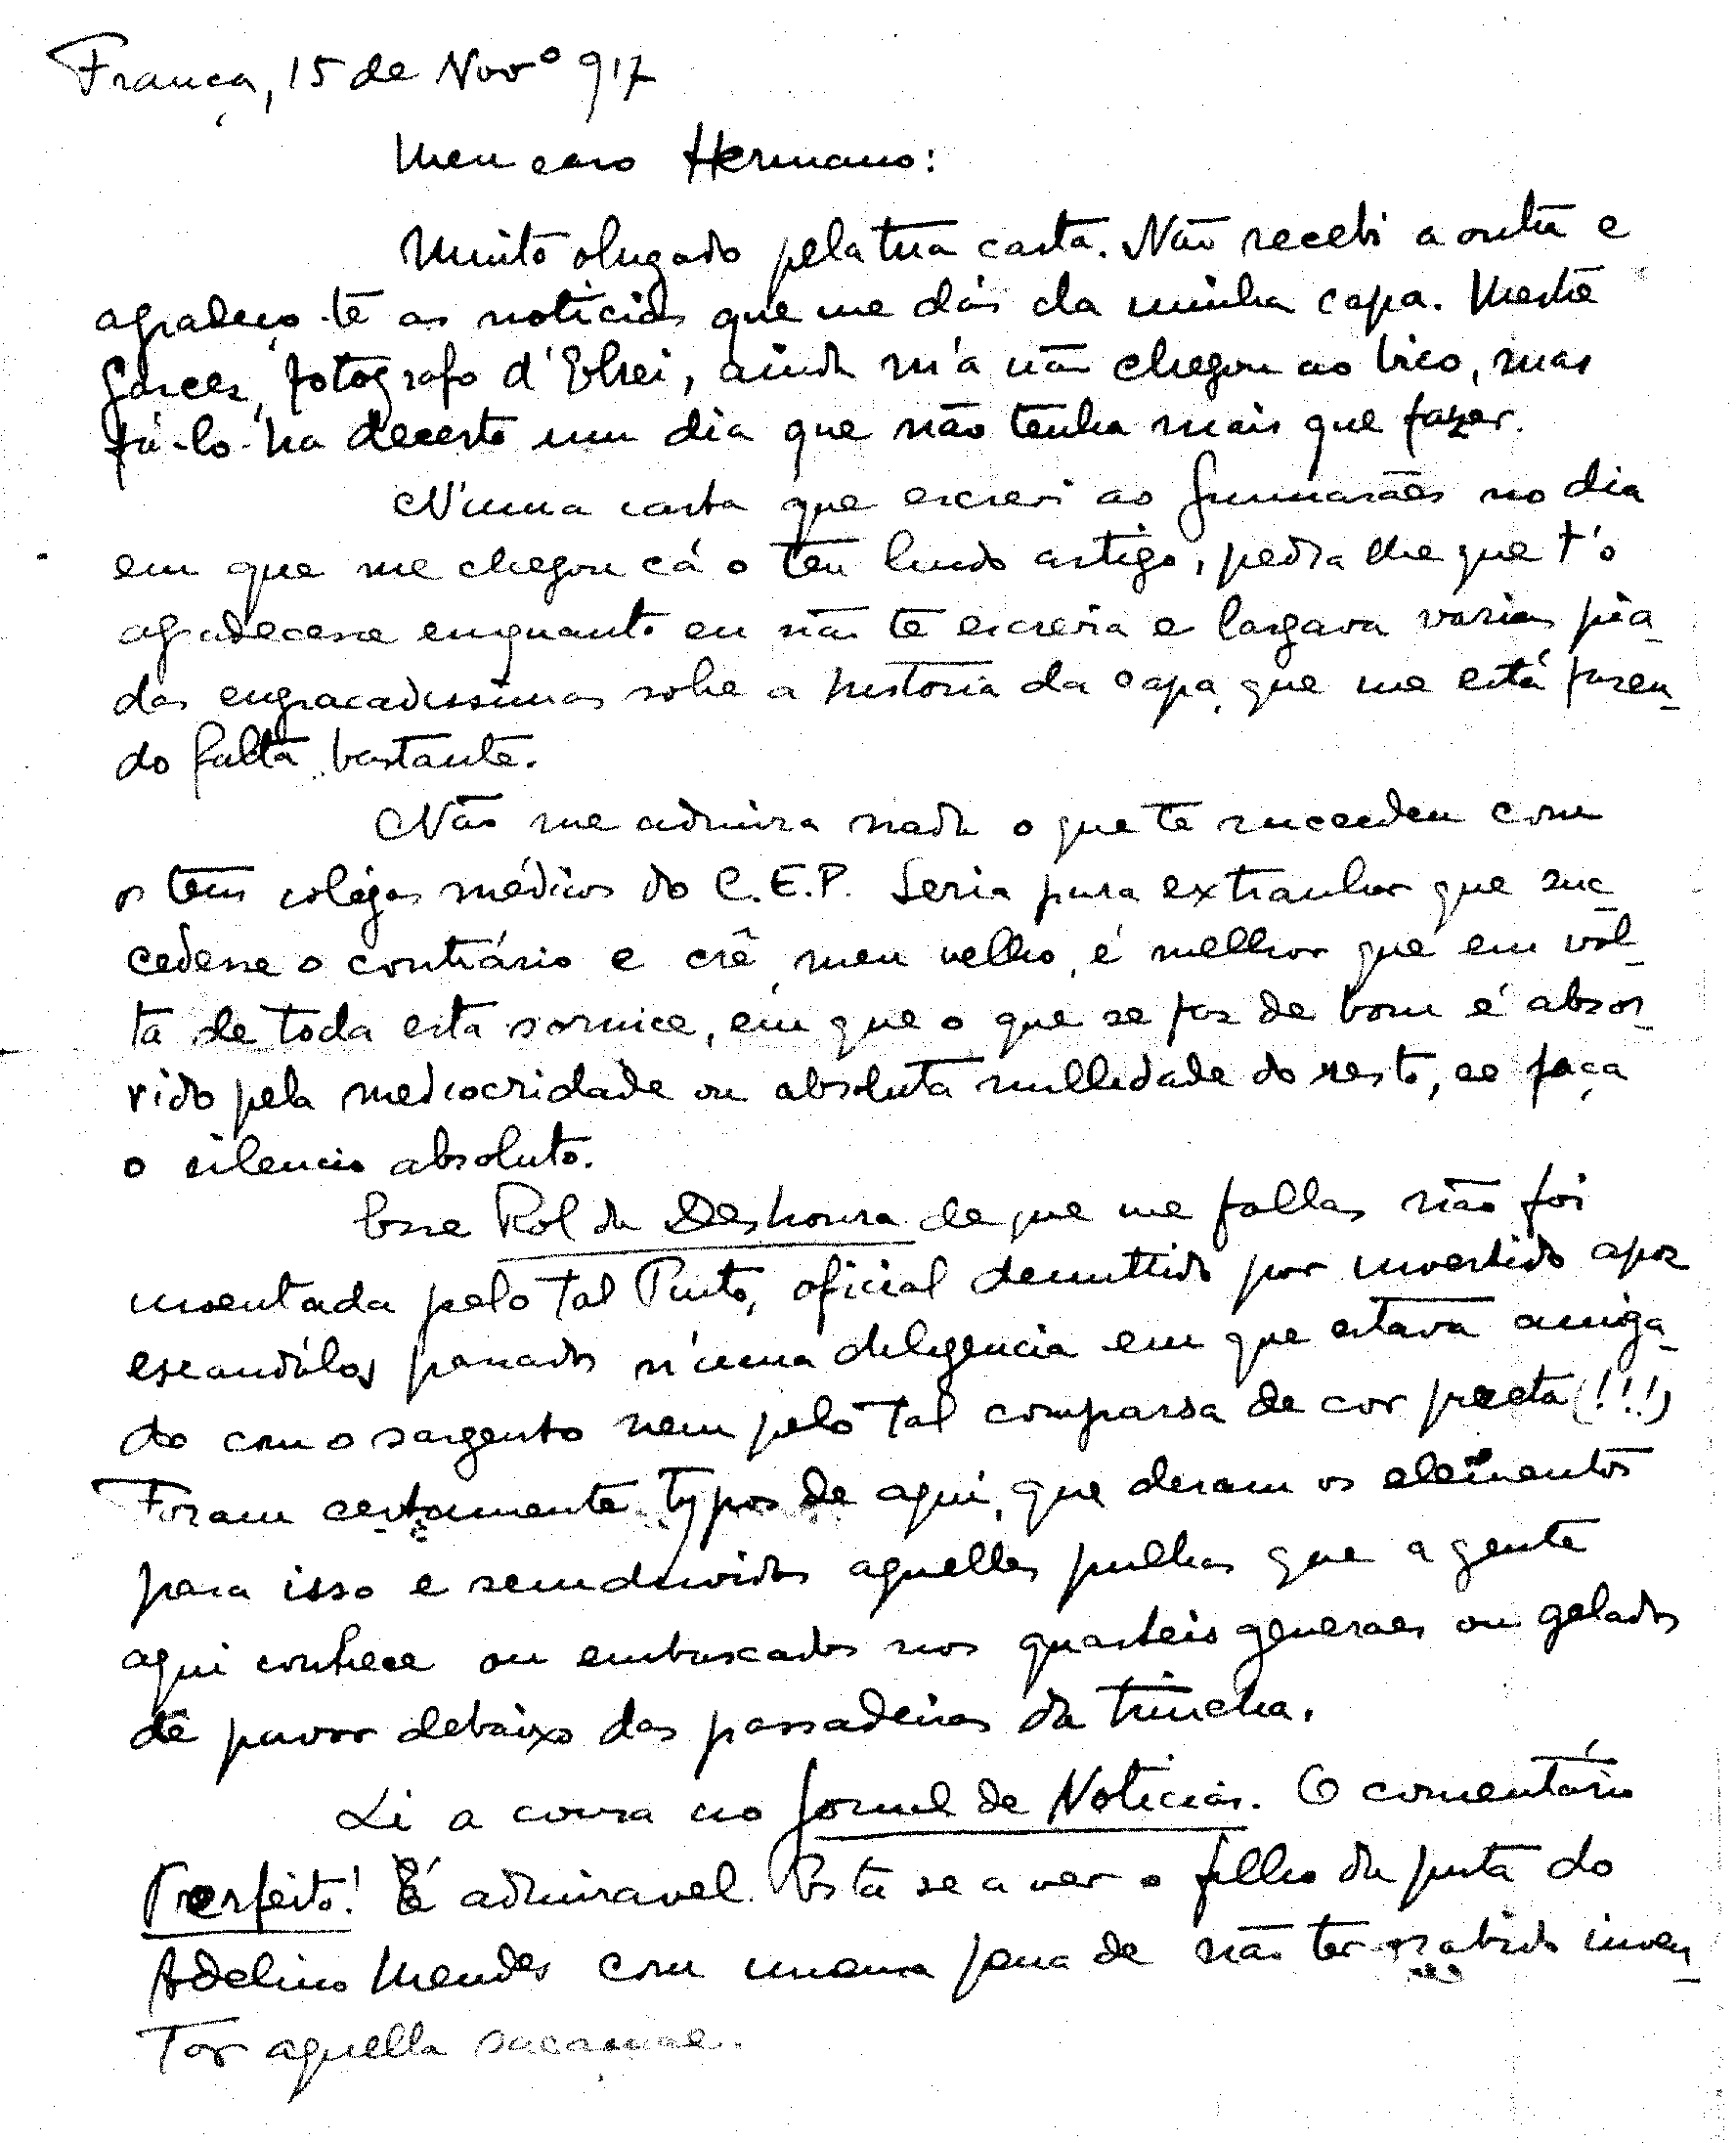 França, 15 de Novº 917
Meu caro Hermano:
Muito obrigado pela tua carta. Não recebi a outra e
agradeço-te as noticias que me dás da minha capa. Mestre
Garcez, fotografo d'Elrei, ainda m'a não chegou ao bico, mas
fá-lo-ha decerto um dia que não tenha mais que fazer.
N'uma carta que escrevi ao Guimarães no dia
em que me chegou cá o teu lindo artigo, pedia lhe que t'o
agradecesse emquanto eu não te escrevia e largava varias pia-
das engraçadissimas sobre a historia da capa, que me está fazen-
do falta bastante.
Não me admira nada o que te succedeu com
os teus colégas médicos do C.E.P. Seria para extranhar que suc-
cedesse o contrário e crê, meu velho, é melhor que em vol-
ta de toda esta sornice, em que o que se faz de bom é absor-
vido pela mediocridade ou absoluta nullidade do resto, se faça
o silencio absoluto.
Esse Rol da Deshonra de que me fallas não foi
inventada pelo tal Pinto, oficial demittido por invertido apoz
escandálos passados n'uma deligencia em que estava amiga-
do com o sargento nem pelo tal comparsa de cor preta (!!!)
Foram certamente typos de aqui, que deram os elementos
para isso e sem duvida aquelles pulhas que a gente
aqui conhece ou embuscados nos quarteis generaes ou gelados
de pavor debaixo das passadeiras da trincha.
Li a coisa no Jornal de Noticias. O comentário
Prerfeito! É admiravel. Está se a ver o filho da puta do
Adelino Mendes com imensa pena de não ter sabido inven-
tar aquella sacanice.